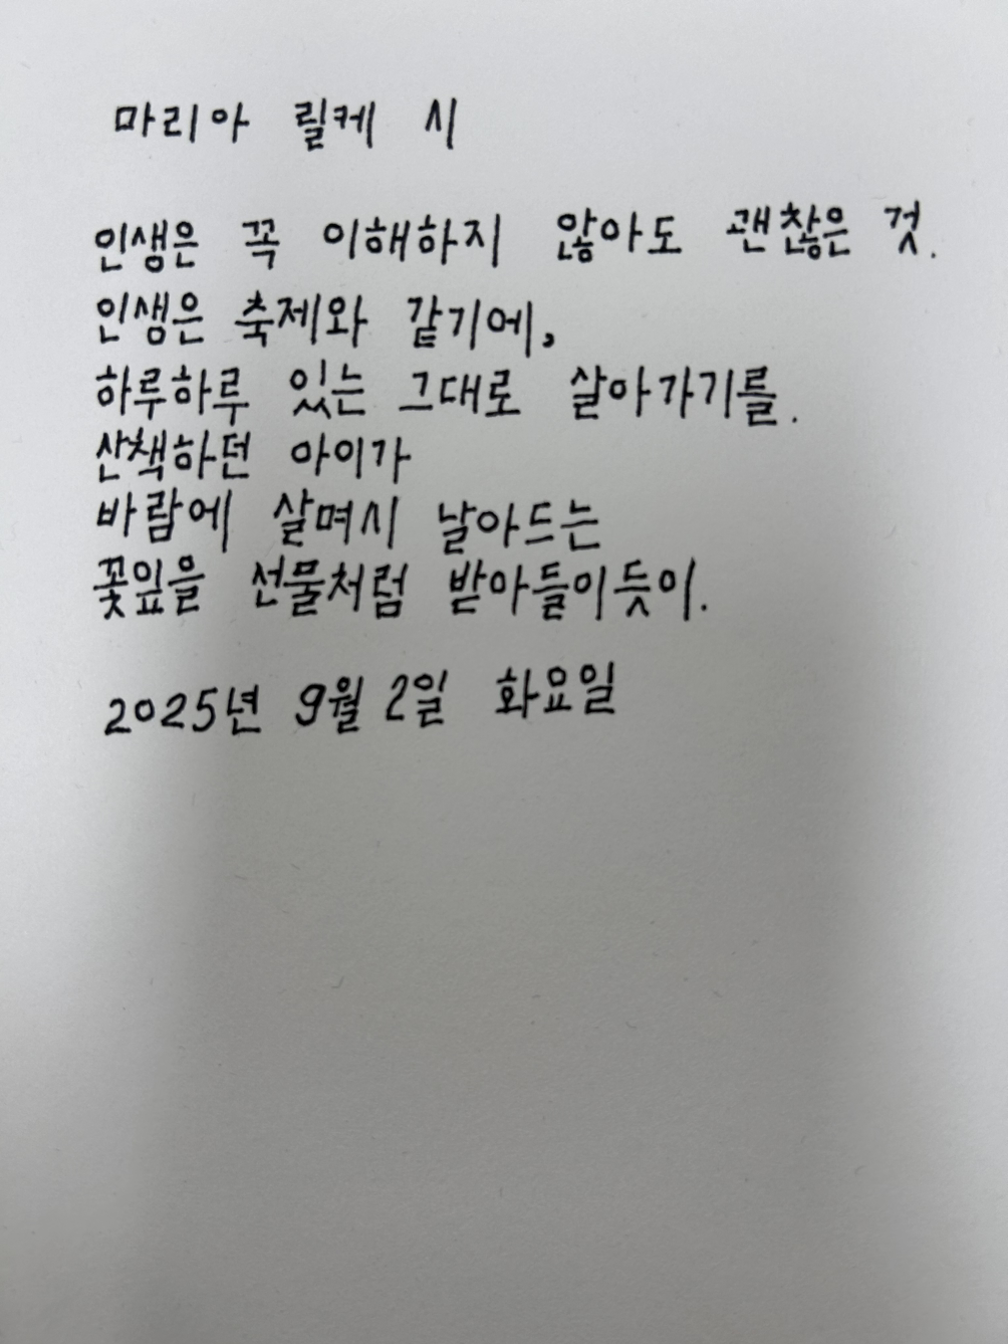 마리아 릴케 시
인생은 꼭 이해하지 않아도 괜찮은 것.
인생은 축제와 같기에,
하루하루 있는 그대로 살아가기를.
산책하던 아이가
바람에 살며시 날아드는
꽃잎을 선물처럼 받아들이듯이.
2025년 9월 2일 화요일